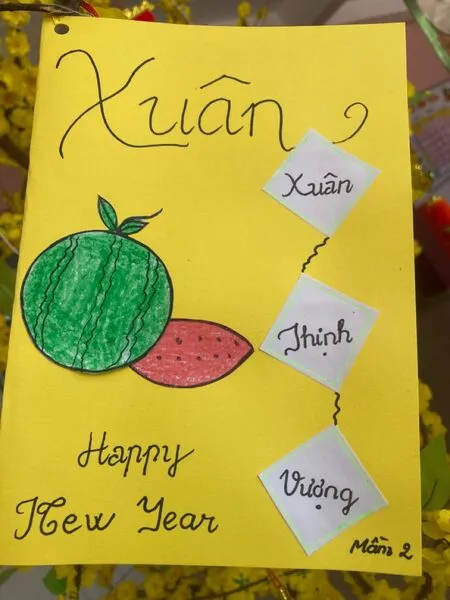 Xuân
Xuân
Thịnh
Vượng
Happy
New Year
Mầm 2